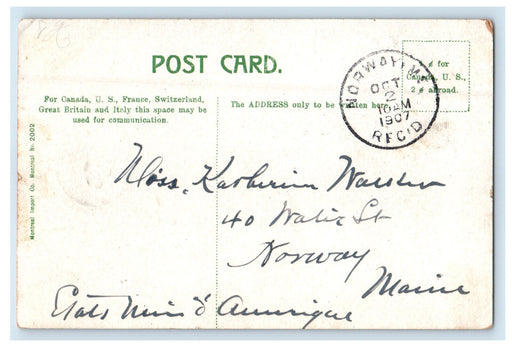 POST CARD.
For Canada, U. S., France, Switzerland,
Great Britain and Italy this space may be
used for communication.
The ADDRESS only to be written here
¢ for
Canada, U. S.,
2 ¢ abroad.
NORWAY, ME.
OCT
2
10AM
1907
REC'D
Montreal Import Co. Montreal No. 2002
Miss. Katherin
40 Water St
Norway
Maine
Etats Unis d'Amerique